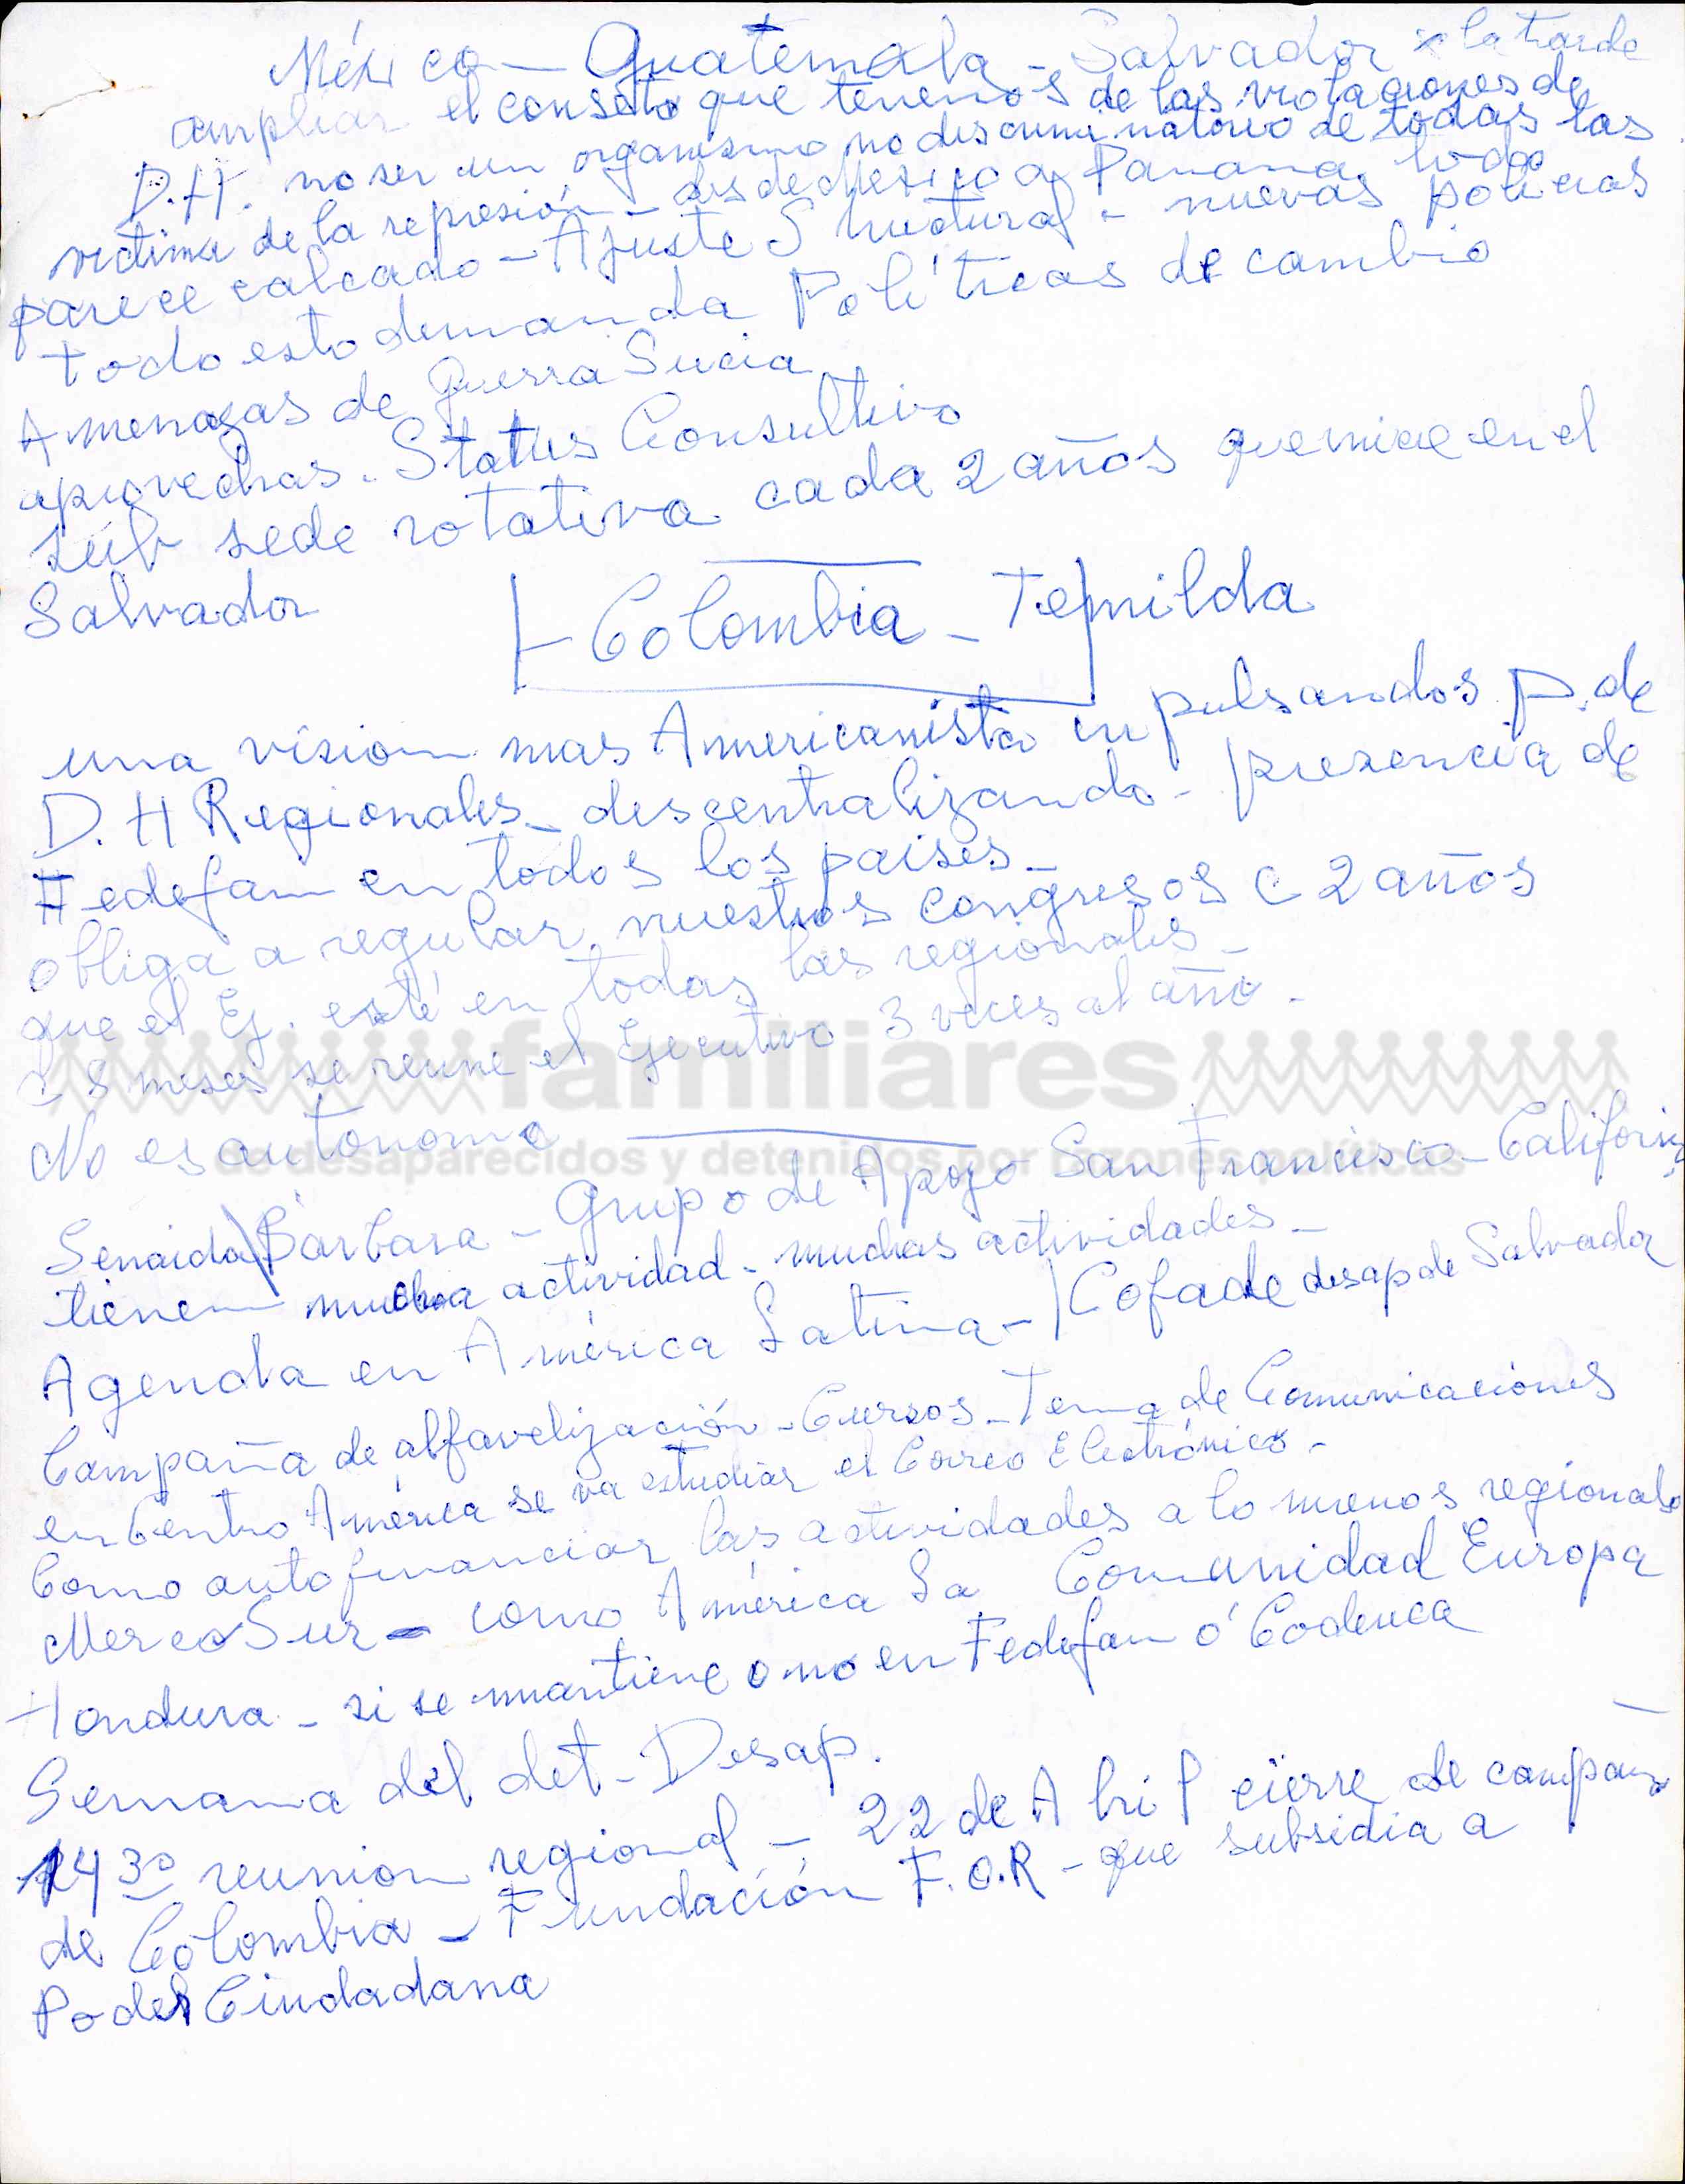 México - Guatemala - Salvador x la tarde
ampliar el conseto que tenemos de las violaciones de
D.H. no ser un organismo no discriminatorio de todas las
victima de la represión - desde Mexico a Panama todo
parece calcado - Ajuste Structural - nuevas policias
todo esto demanda Políticas de cambio
Amenazas de Guerra Sucia
aprovechas. Status Consultivo
sub sede rotativa cada 2 años que inicie en el
Salvador
Colombia - Temilda
una vision mas Americanista inpulsandos P. de
D.H Regionales - descentralizando - presencia de
Fedefam en todos los paises -
obliga a regular nuestros congresos c 2 años
que el Ej. esté en todas las regionales -
C 8 meses se reune el Ejecutivo 3 veces al año -
familiares
No es autonomo
de desaparecidos y detenidos por razones políticas
Senaida Barbara - Grupo de Apoyo San Francisco - California
tienen mucha actividad - muchas actividades -
Agenda en América Latina - / Cofade desap de Salvador
Campaña de alfavelización - Cursos - Tema de Comunicaciones
en Centro América se va estudiar el Correo Electrónico -
Como auto financiar las actividades a lo menos regionales
MercoSur - como América La Comunidad Europa
Hondura - si se mantiene o no en Fedefam ó Codeuca
Semana del det - Desap.
14 3º reunion regional - 22 de Abril cierre de campaña
de Colombia - Fundación F.O.R - que subsidia a
Poder Ciudadana